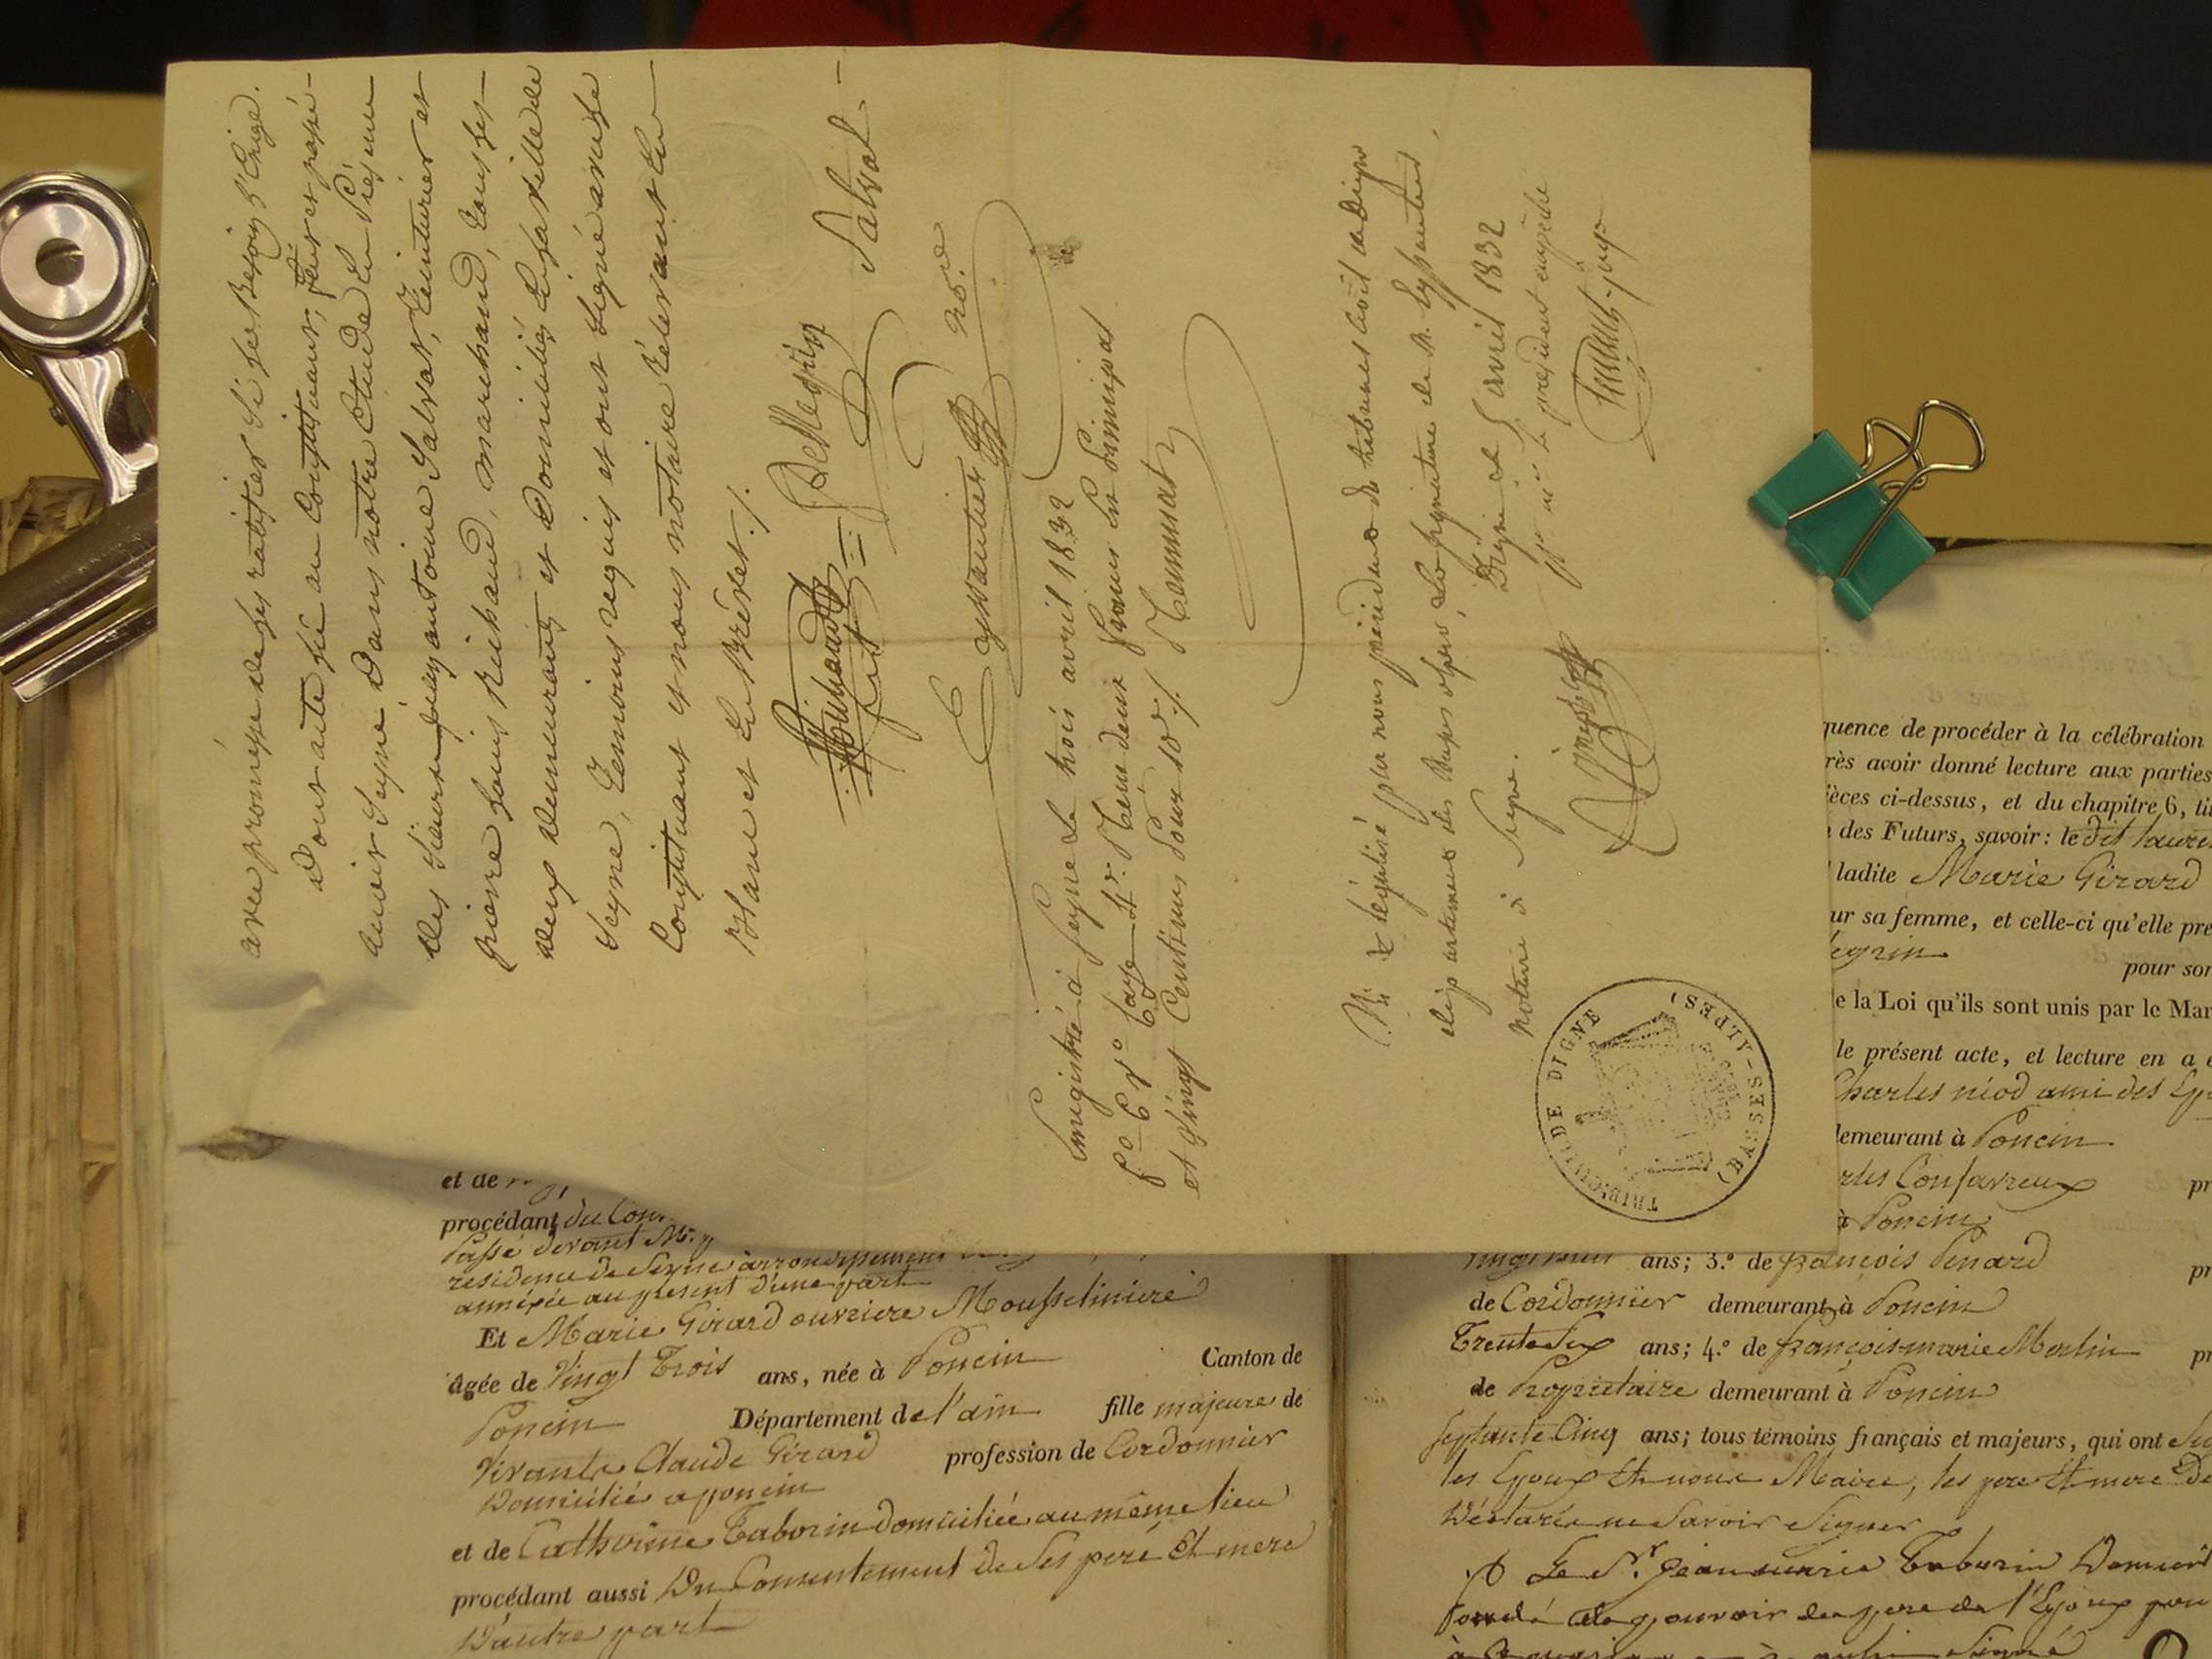 avec promesse de les ratifier si le Besoin l'Exige.
Dont acte fié au Constituant, fait et passé
audit Seyne dans notre Etude En Présence
des Sieurs jean antoine Salvat, Teinturier et
pierre Louis Richaud, marchand, tous les
deux demeurant et Domiciliés En la Ville de
Seyne, Temoins requis et ont signé avec le
Constituant et nous notaire Relevant Le
Blanc et Le Brévet ./.
Richaud Pellegrin Salvat
Eyssautier nore
Enregistré à Seyne Le trois avril 1832
fo 6 Vo Case 4 Reçu deux francs En Principal
et Vingt Centimes Pour 10e ./.
Vu & légalisé par nous président du tribunal civil de Digne
département des Basses alpes, la signature de M. Eyssautier,
notaire à Seyne. Digne le 5 avril 1832
pr Mr le président empêché
juge
TRIBUNAL DE DIGNE
(BASSES-ALPES)
et de
procédant du
Passé devant Me
residence de Seyne arrondissement
annéxée au présent d'une part
Et Marie Girard ouvriere Mousseliniere
âgée de Vingt Trois ans, née à Poncin Canton de
Poncin Département de l'ain fille majeure de
Vivants Claude Girard profession de Cordonnier
Domicilié a poncin
et de Catherine Taborin domiciliée au même lieu
procédant aussi Du Consentement de Ses pere Et mere
D'autre part
quence de procéder à la célébration
rès avoir donné lecture aux parties
ièces ci-dessus, et du chapitre 6, tit
des Futurs, savoir: le dit laure
ladite Marie Girard
ur sa femme, et celle-ci qu'elle pre
legrin pour son
e la Loi qu'ils sont unis par le Mar
le présent acte, et lecture en a é
Charles niod ami des Ep
demeurant à Poncin
rles Confavreux pr
à Poncin
ans; 3.º de françois Penard pr
de Cordonnier demeurant à Poncin
Trente Six ans; 4.º de françois-marie Merlin pr
de Propriétaire demeurant à Poncin
Septante Cinq ans; tous témoins français et majeurs, qui ont
les Epoux Et nous Maire, les pere Et mere De
Déclaré ne Savoir Signer
Le Sr. jean marie Taborin
fondé de pouvoir du pere de l'Epoux pour